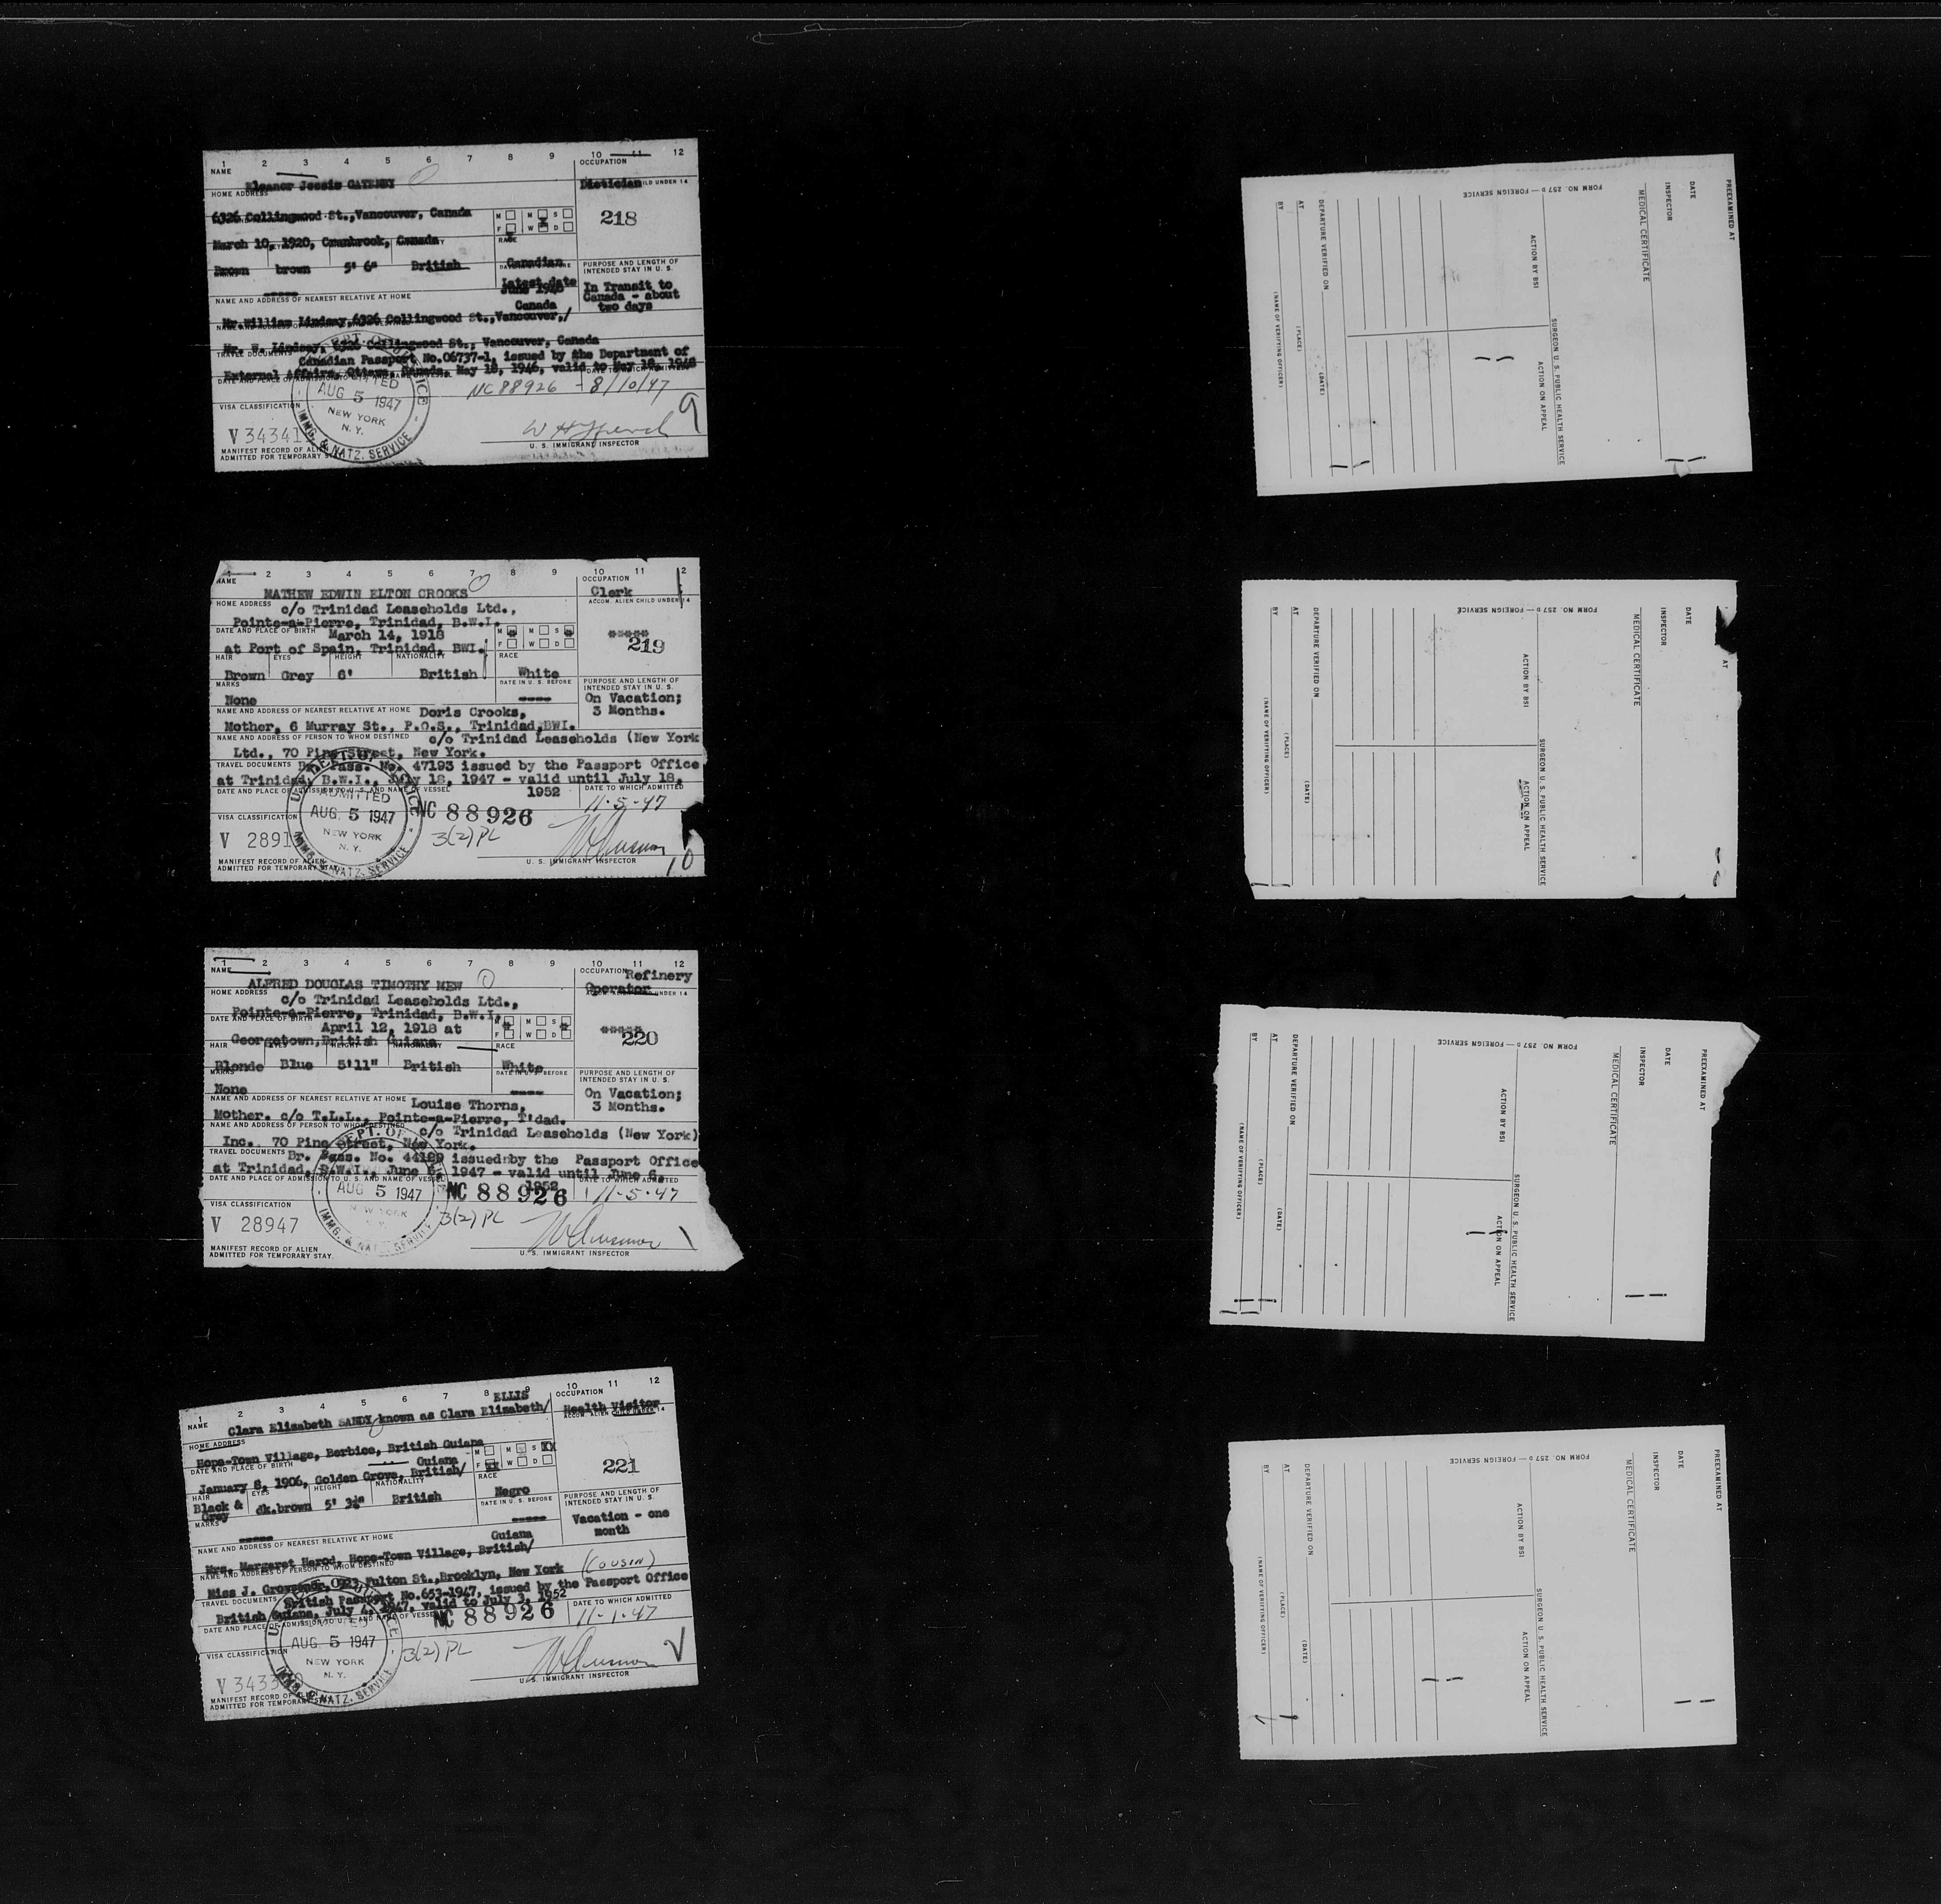 1 2 3 4 5 6 7 8 9 10 11 12
NAME
OCCUPATION
Eleanor Jessie GATENBY
Dietician
HOME ADDRESS
6326 Collingwood St.,Vancouver, Canada
M M S
F W D
218
March 10, 1920, Cranbrook, Canada
RACE
Brown brown 5' 6" British Canadian
PURPOSE AND LENGTH OF
INTENDED STAY IN U. S.
latest date
June 1946
In Transit to
Canada - about
two days
NAME AND ADDRESS OF NEAREST RELATIVE AT HOME
Canada
Mr.William Lindsay,6326 Collingwood St.,Vancouver,/
Mr. W. Lindsay, 6326 Collingwood St., Vancouver, Canada
TRAVEL DOCUMENTS
Canadian Passport No.06737-1, issued by the Department of
External Affairs, Ottawa, Canada, May 18, 1946, valid to May 18, 1948
ADMITTED
AUG 5 1947
NEW YORK
N. Y.
IMMG. & NATZ. SERVICE
NC 88926 - 8/10/47
VISA CLASSIFICATION
V 34341
9
U. S. IMMIGRANT INSPECTOR
MANIFEST RECORD OF ALIEN
ADMITTED FOR TEMPORARY STAY
1 2 3 4 5 6 7 8 9 10 11 12
NAME
OCCUPATION
MATHEW EDWIN ELTON CROOKS
Clerk
HOME ADDRESS
ACCOM. ALIEN CHILD UNDER 14
c/o Trinidad Leaseholds Ltd.,
Pointe-a-Pierre, Trinidad, B.W.I.
DATE AND PLACE OF BIRTH
March 14, 1918
M M S
F W D
*****
219
at Port of Spain, Trinidad, BWI.
HAIR EYES HEIGHT NATIONALITY RACE
Brown Grey 6' British White
MARKS
DATE IN U. S. BEFORE
PURPOSE AND LENGTH OF
INTENDED STAY IN U. S.
None
----
On Vacation;
3 Months.
NAME AND ADDRESS OF NEAREST RELATIVE AT HOME
Doris Crooks,
Mother, 6 Murray St., P.O.S., Trinidad,BWI.
NAME AND ADDRESS OF PERSON TO WHOM DESTINED
c/o Trinidad Leaseholds (New York
Ltd., 70 Pine Street, New York.
TRAVEL DOCUMENTS
Br. Pass. No. 47193 issued by the Passport Office
at Trinidad, B.W.I., July 18, 1947 - valid until July 18,
1952
DATE AND PLACE OF ADMISSION TO U. S. AND NAME OF VESSEL
DATE TO WHICH ADMITTED
ADMITTED
AUG. 5 1947
NEW YORK
N. Y.
IMMG. & NATZ. SERVICE
NC 88926
11-5-47
VISA CLASSIFICATION
V 2891
3(2)PL
10
U. S. IMMIGRANT INSPECTOR
MANIFEST RECORD OF ALIEN
ADMITTED FOR TEMPORARY STAY
1 2 3 4 5 6 7 8 9 10 11 12
NAME
OCCUPATION
Refinery
Operator
ALFRED DOUGLAS TIMOTHY MEW
HOME ADDRESS
c/o Trinidad Leaseholds Ltd.,
Pointe-a-Pierre, Trinidad, B.W.I.
DATE AND PLACE OF BIRTH
April 12, 1918 at
M M S
F W D
*****
220
Georgetown,British Guiana
HAIR EYES HEIGHT NATIONALITY RACE
Blonde Blue 5'11" British White
MARKS
DATE IN U. S. BEFORE
PURPOSE AND LENGTH OF
INTENDED STAY IN U. S.
None
----
On Vacation;
3 Months.
NAME AND ADDRESS OF NEAREST RELATIVE AT HOME
Louise Thorns,
Mother. c/o T.L.L., Pointe-a-Pierre, T'dad.
NAME AND ADDRESS OF PERSON TO WHOM DESTINED
c/o Trinidad Leaseholds (New York)
Inc., 70 Pine Street, New York.
TRAVEL DOCUMENTS
Br. Pass. No. 44189 issuednby the Passport Office
at Trinidad, B.W.I., June 6, 1947 - valid until June 6,
1952
DATE AND PLACE OF ADMISSION TO U. S. AND NAME OF VESSEL
DATE TO WHICH ADMITTED
AUG 5 1947
NEW YORK
IMMG. & NATZ. SERVICE
NC 88926
11-5-47
VISA CLASSIFICATION
V 28947
3(2)PL
U. S. IMMIGRANT INSPECTOR
MANIFEST RECORD OF ALIEN
ADMITTED FOR TEMPORARY STAY.
1 2 3 4 5 6 7 8 9 10 11 12
NAME
ELLIS
OCCUPATION
Clara Elizabeth SANDY known as Clara Elizabeth/
Health Visitor
HOME ADDRESS
ACCOM. ALIEN CHILD UNDER 14
Hope-Town Village, Berbice, British Guiana
DATE AND PLACE OF BIRTH
Guiana
M M S XX
F XX W D
221
January 8, 1906, Golden Grove, British/
HAIR EYES HEIGHT NATIONALITY RACE
Black &
Grey
dk.brown 5' 3½" British Negro
MARKS
DATE IN U. S. BEFORE
PURPOSE AND LENGTH OF
INTENDED STAY IN U. S.
Vacation - one
month
NAME AND ADDRESS OF NEAREST RELATIVE AT HOME
Guiana
Mrs. Margaret Harod, Hope-Town Village, British/
NAME AND ADDRESS OF PERSON TO WHOM DESTINED
Miss J. Grovesnor, 0923 Fulton St.,Brooklyn, New York (COUSIN)
TRAVEL DOCUMENTS
British Passport No.653-1947, issued by the Passport Office
British Guiana, July 4, 1947, valid to July 3, 1952
DATE AND PLACE OF ADMISSION TO U. S. AND NAME OF VESSEL
DATE TO WHICH ADMITTED
AUG 5 1947
NEW YORK
N. Y.
IMMG. & NATZ. SERVICE
NC 88926
11-1-47
VISA CLASSIFICATION
V 3433
3(2)PL
U. S. IMMIGRANT INSPECTOR
MANIFEST RECORD OF ALIEN
ADMITTED FOR TEMPORARY STAY
PREEXAMINED AT
DATE
INSPECTOR
MEDICAL CERTIFICATE
SURGEON U. S. PUBLIC HEALTH SERVICE
ACTION BY BSI
ACTION ON APPEAL
DEPARTURE VERIFIED ON
(DATE)
AT
(PLACE)
BY
(NAME OF VERIFYING OFFICER)
FORM NO. 257 D — FOREIGN SERVICE
AT
DATE
INSPECTOR
MEDICAL CERTIFICATE
SURGEON U. S. PUBLIC HEALTH SERVICE
ACTION BY BSI
ACTION ON APPEAL
DEPARTURE VERIFIED ON
(DATE)
AT
(PLACE)
BY
(NAME OF VERIFYING OFFICER)
FORM NO. 257 D — FOREIGN SERVICE
PREEXAMINED AT
DATE
INSPECTOR
MEDICAL CERTIFICATE
SURGEON U. S. PUBLIC HEALTH SERVICE
ACTION BY BSI
ACTION ON APPEAL
DEPARTURE VERIFIED ON
(DATE)
AT
(PLACE)
BY
(NAME OF VERIFYING OFFICER)
FORM NO. 257 D — FOREIGN SERVICE
PREEXAMINED AT
DATE
INSPECTOR
MEDICAL CERTIFICATE
SURGEON U. S. PUBLIC HEALTH SERVICE
ACTION BY BSI
ACTION ON APPEAL
DEPARTURE VERIFIED ON
(DATE)
AT
(PLACE)
BY
(NAME OF VERIFYING OFFICER)
FORM NO. 257 D — FOREIGN SERVICE